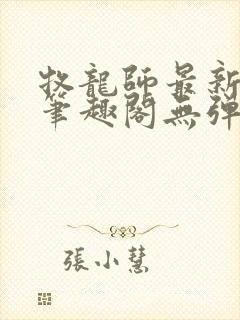 牧龍師最新
筆趣閣無彈
張小慧